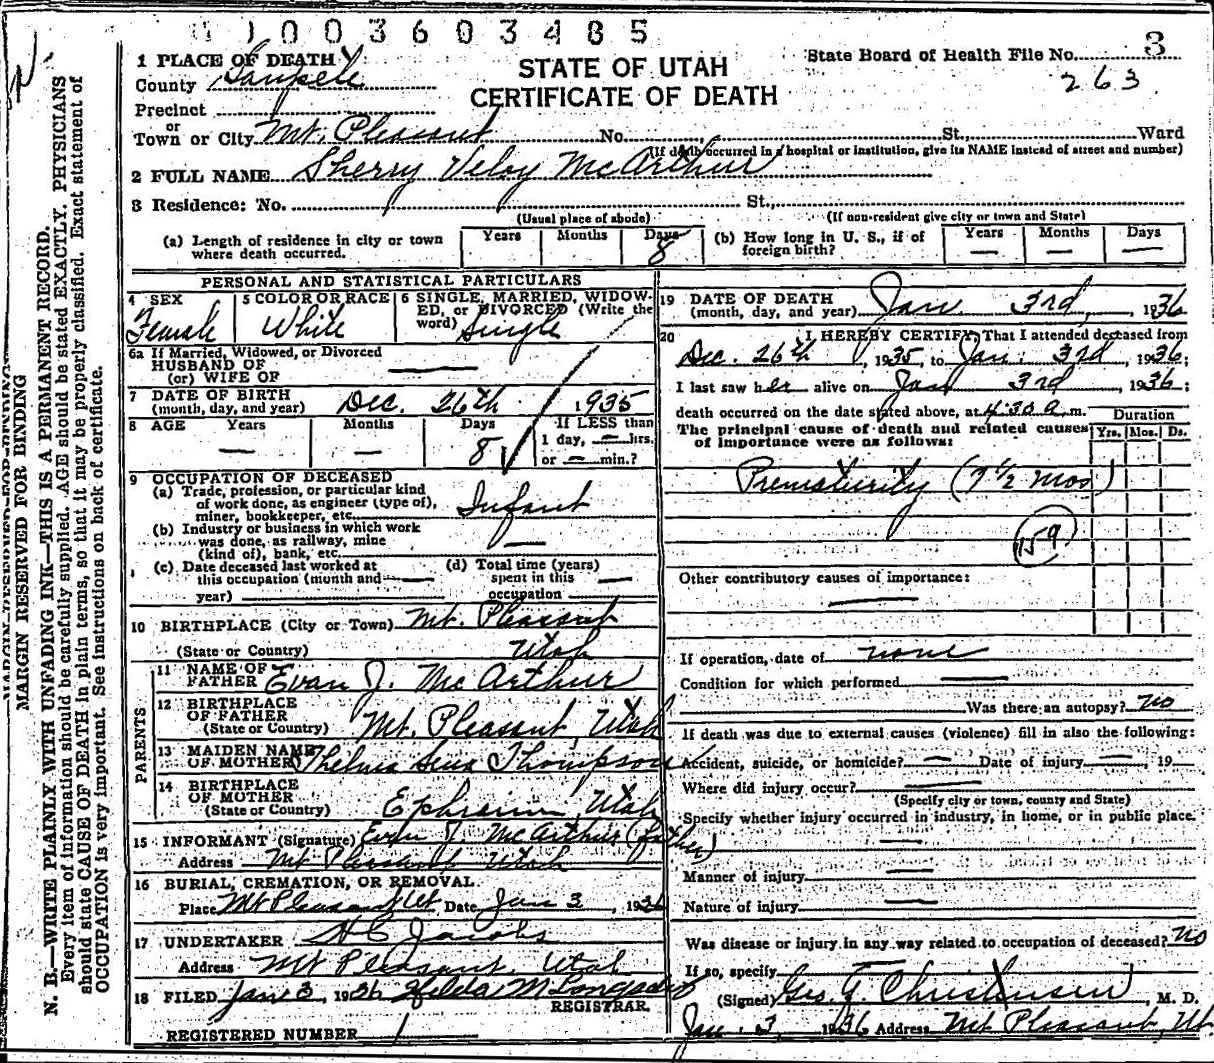 1003603485
1 PLACE OF DEATH
County Sanpete
Precinct
or
Town or City Mt. Pleasant No. St., Ward
STATE OF UTAH
CERTIFICATE OF DEATH
State Board of Health File No. 3
263
(If death occurred in a hospital or institution, give its NAME instead of street and number)
2 FULL NAME Sherry Veloy McArthur
3 Residence: No. St.,
(Usual place of abode) (If non-resident give city or town and State)
(a) Length of residence in city or town where death occurred. Years Months Days 8
(b) How long in U. S., if of foreign birth? Years — Months — Days —
PERSONAL AND STATISTICAL PARTICULARS
4 SEX Female
5 COLOR OR RACE White
6 SINGLE, MARRIED, WIDOWED, or DIVORCED (Write the word) Single
6a If Married, Widowed, or Divorced
HUSBAND OF
(or) WIFE OF —
7 DATE OF BIRTH
(month, day, and year) Dec. 26th 1935
8 AGE Years — Months — Days 8
If LESS than
1 day, — hrs.
or — min.?
9 OCCUPATION OF DECEASED
(a) Trade, profession, or particular kind
of work done, as engineer (type of),
miner, bookkeeper, etc. Infant
(b) Industry or business in which work
was done, as railway, mine
(kind of), bank, etc. —
(c) Date deceased last worked at
this occupation (month and
year) —
(d) Total time (years)
spent in this
occupation —
10 BIRTHPLACE (City or Town) Mt. Pleasant
(State or Country) Utah
PARENTS
11 NAME OF
FATHER Evan J. McArthur
12 BIRTHPLACE
OF FATHER
(State or Country) Mt. Pleasant, Utah
13 MAIDEN NAME
OF MOTHER Thelma Sena Thompson
14 BIRTHPLACE
OF MOTHER
(State or Country) Ephraim, Utah
15 INFORMANT (Signature) Evan J. McArthur (father)
Address Mt Pleasant Utah
16 BURIAL, CREMATION, OR REMOVAL
Place Mt Pleasant Ut. Date Jan 3, 1936
17 UNDERTAKER
Jacobs
Address Mt Pleasant, Utah
18 FILED Jan 3, 1936 Hilda M
REGISTRAR.
REGISTERED NUMBER 1
19 DATE OF DEATH
(month, day, and year) Jan. 3rd, 1936
20 I HEREBY CERTIFY, That I attended deceased from
Dec. 26th, 1935, to Jan. 3rd, 1936;
I last saw her alive on Jan 3rd, 1936;
death occurred on the date stated above, at 4:30 a. m.
The principal cause of death and related causes
of importance were as follows:
Duration
Yrs. Mos. Ds.
Prematurity (7 1/2 mos)
159
Other contributory causes of importance:
—
If operation, date of none
Condition for which performed —
Was there an autopsy? no
If death was due to external causes (violence) fill in also the following:
Accident, suicide, or homicide? — Date of injury —, 19
Where did injury occur? —
(Specify city or town, county and State)
Specify whether injury occurred in industry, in home, or in public place.
—
Manner of injury —
Nature of injury —
Was disease or injury in any way related to occupation of deceased? no
If so, specify
(Signed) Geo. Christensen, M. D.
Jan. 3, 1936 Address Mt Pleasant, Ut.
MARGIN RESERVED FOR BINDING
N. B.—WRITE PLAINLY WITH UNFADING INK—THIS IS A PERMANENT RECORD.
Every item of information should be carefully supplied. AGE should be stated EXACTLY. PHYSICIANS
should state CAUSE OF DEATH in plain terms, so that it may be properly classified. Exact statement of
OCCUPATION is very important. See instructions on back of certificate.